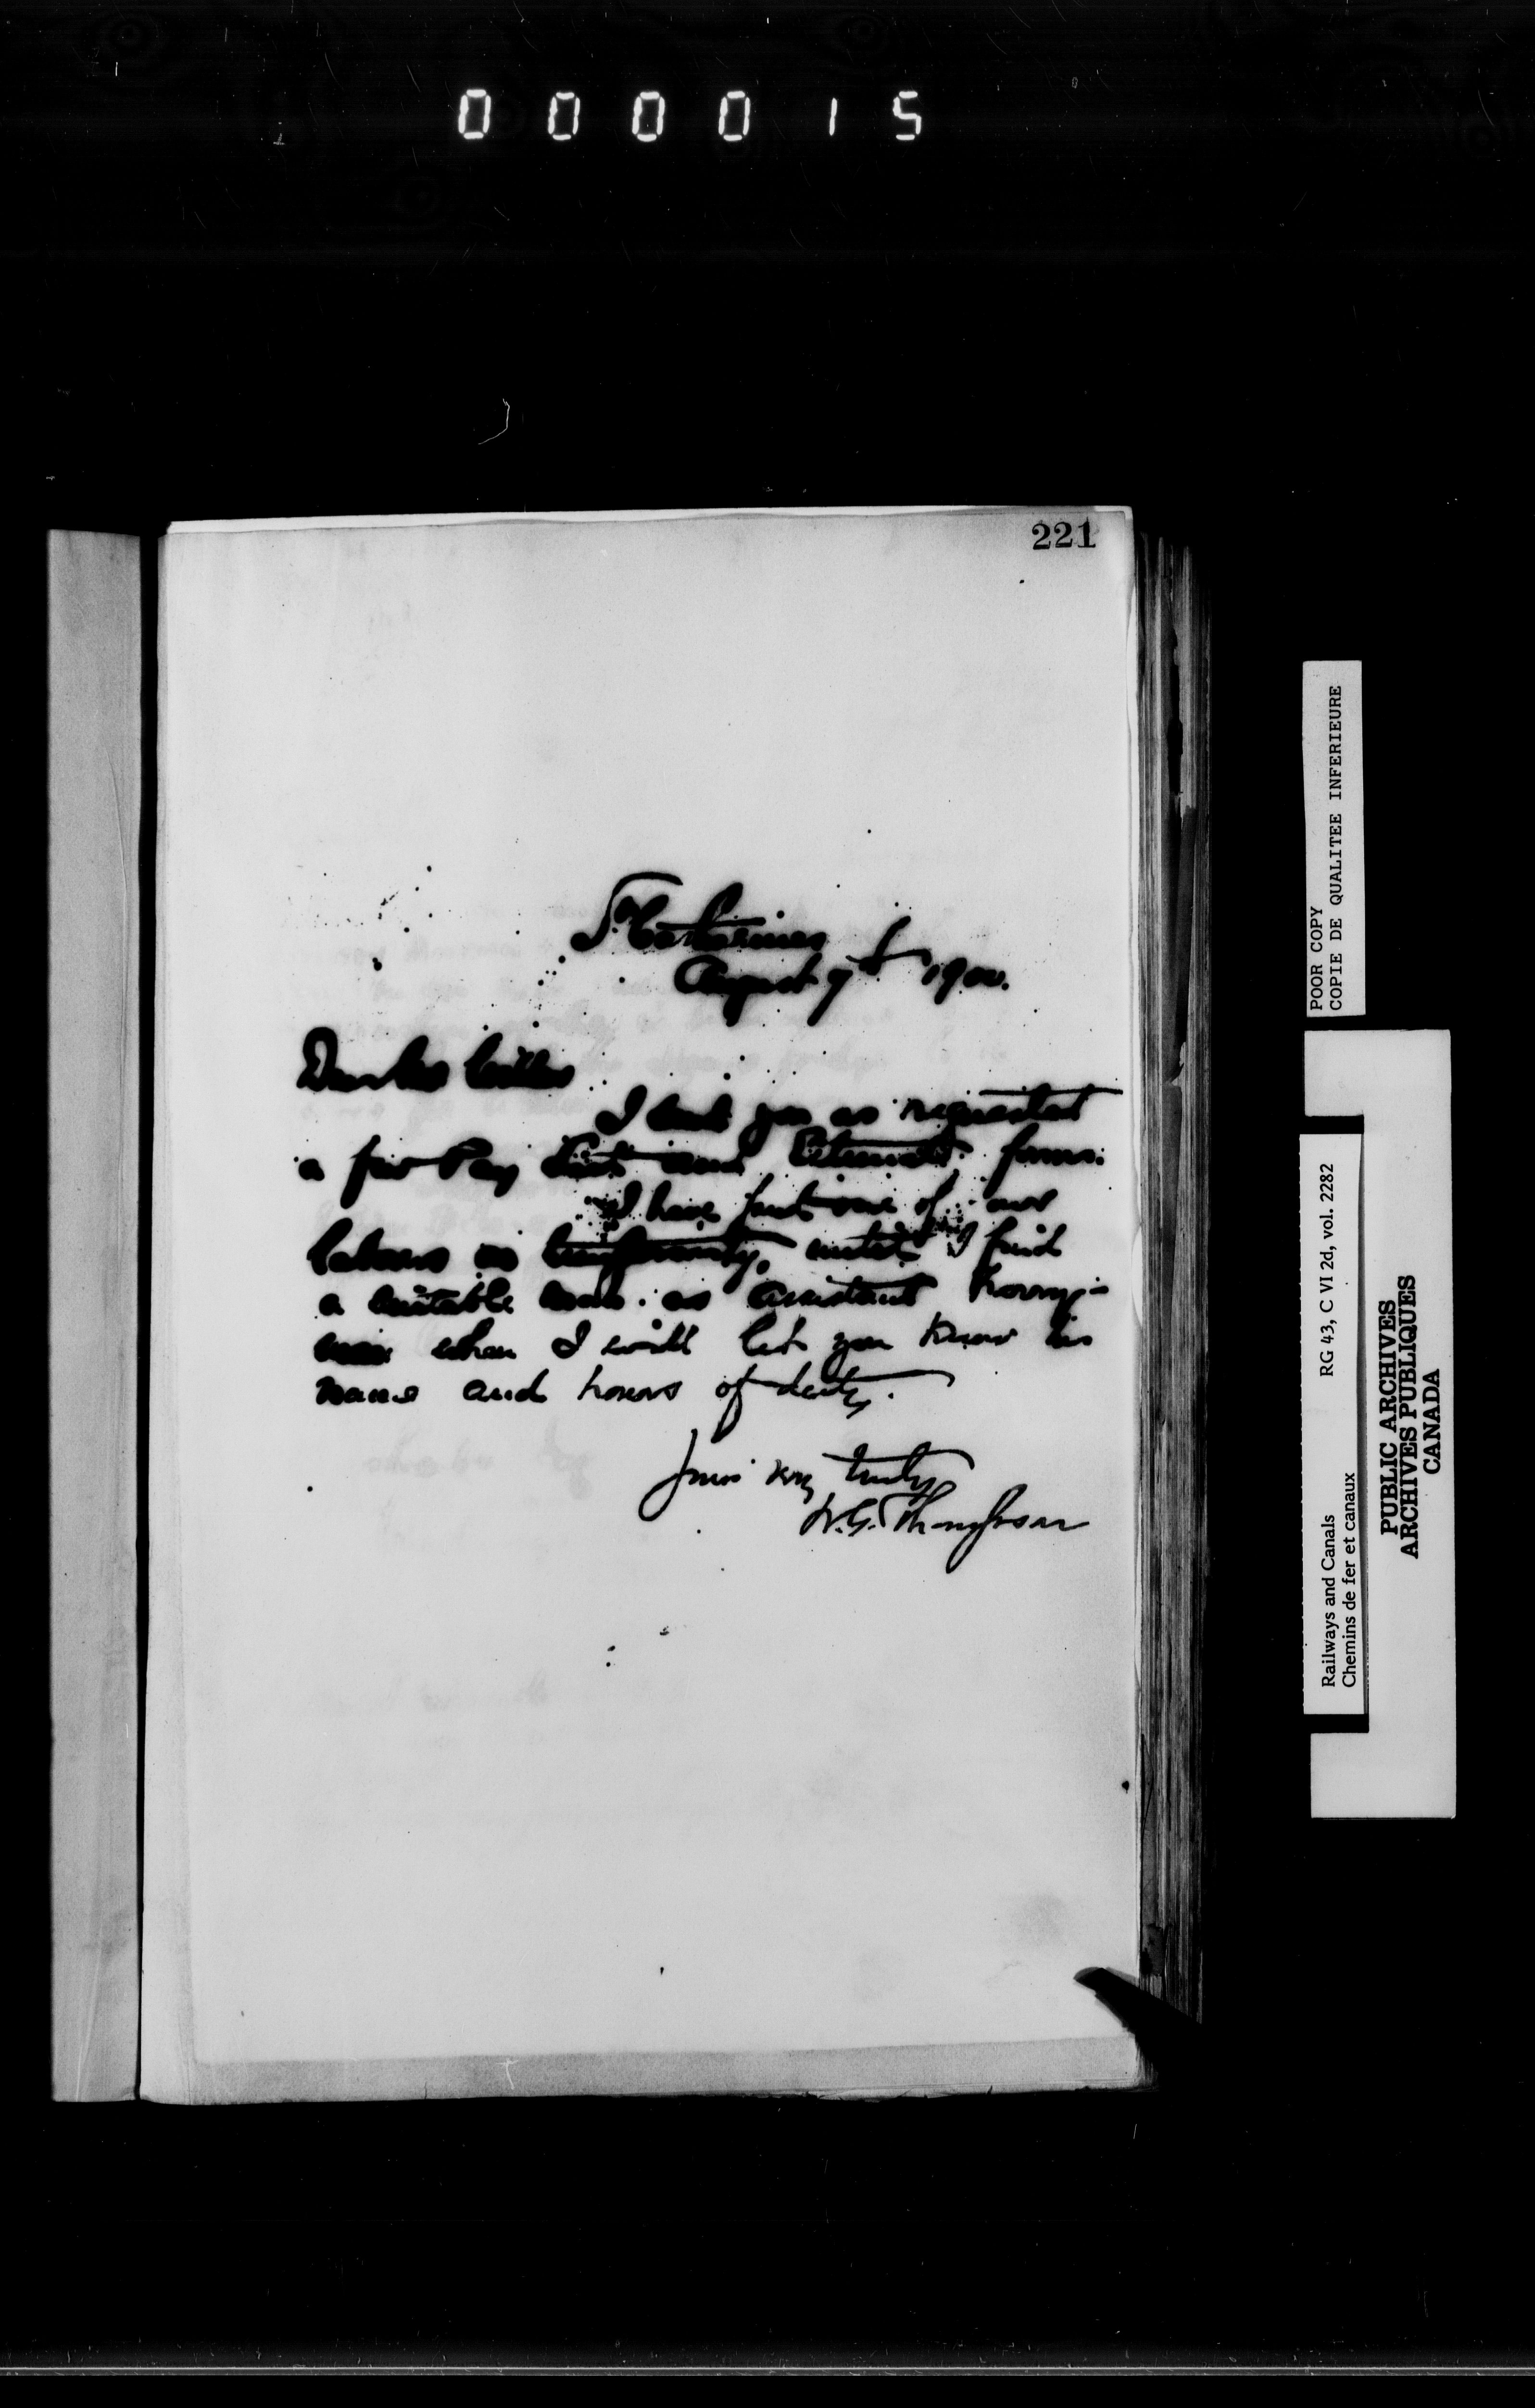 0 0 0 0 1 5
221
St Catharines
August 7th 1900.
Dear
I send you as requested
a few Pay List and Estimate forms.
I have put one of our
on temporarily, until I find
a suitable man as assistant
when I will let you know his
name and hours of duty.
Yours very truly
W.G. Thompson
POOR COPY
COPIE DE QUALITEE INFERIEURE
RG 43, C VI 2d, vol. 2282
Railways and Canals
Chemins de fer et canaux
PUBLIC ARCHIVES
ARCHIVES PUBLIQUES
CANADA